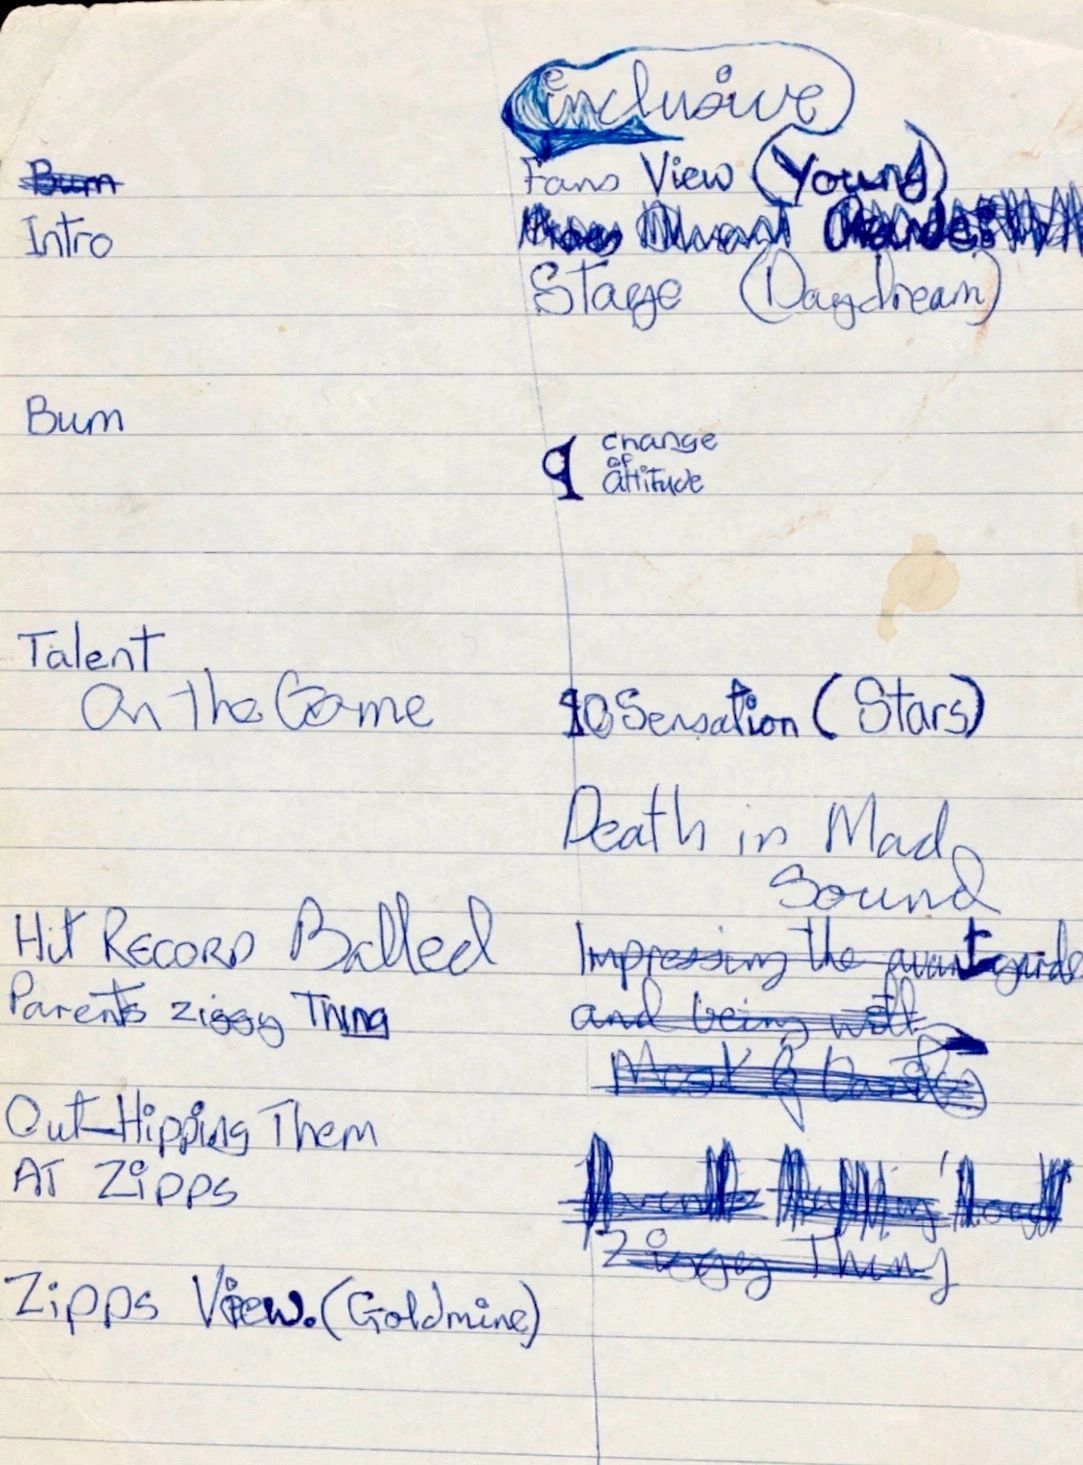 inclusive
Bum
Intro
Bum
Talent
On the Game
Hit RECORD Balled
Parents ziggy Thing
Out-Hipping Them
AT Zipps
Zipps View. (Goldmine)
Fans View (Young)
Stage (Daydream)
9 change
of
attitude
10 Sensation (Stars)
Death in Mad
Sound
Impressing the avant garde
and being with
Ziggy Thing